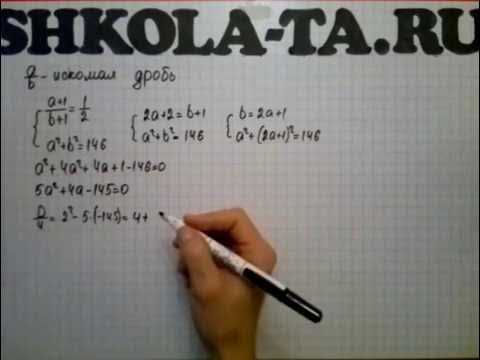 SHKOLA-TA.RU
a/b - искомая дробь
{ (a+1)/(b+1) = 1/2 { 2a+2=b+1 { b=2a+1
a²+b²=146 a²+b²=146 a²+(2a+1)²=146
a²+4a²+4a+1-146=0
5a²+4a-145=0
D/4 = 2²-5·(-145)=4+